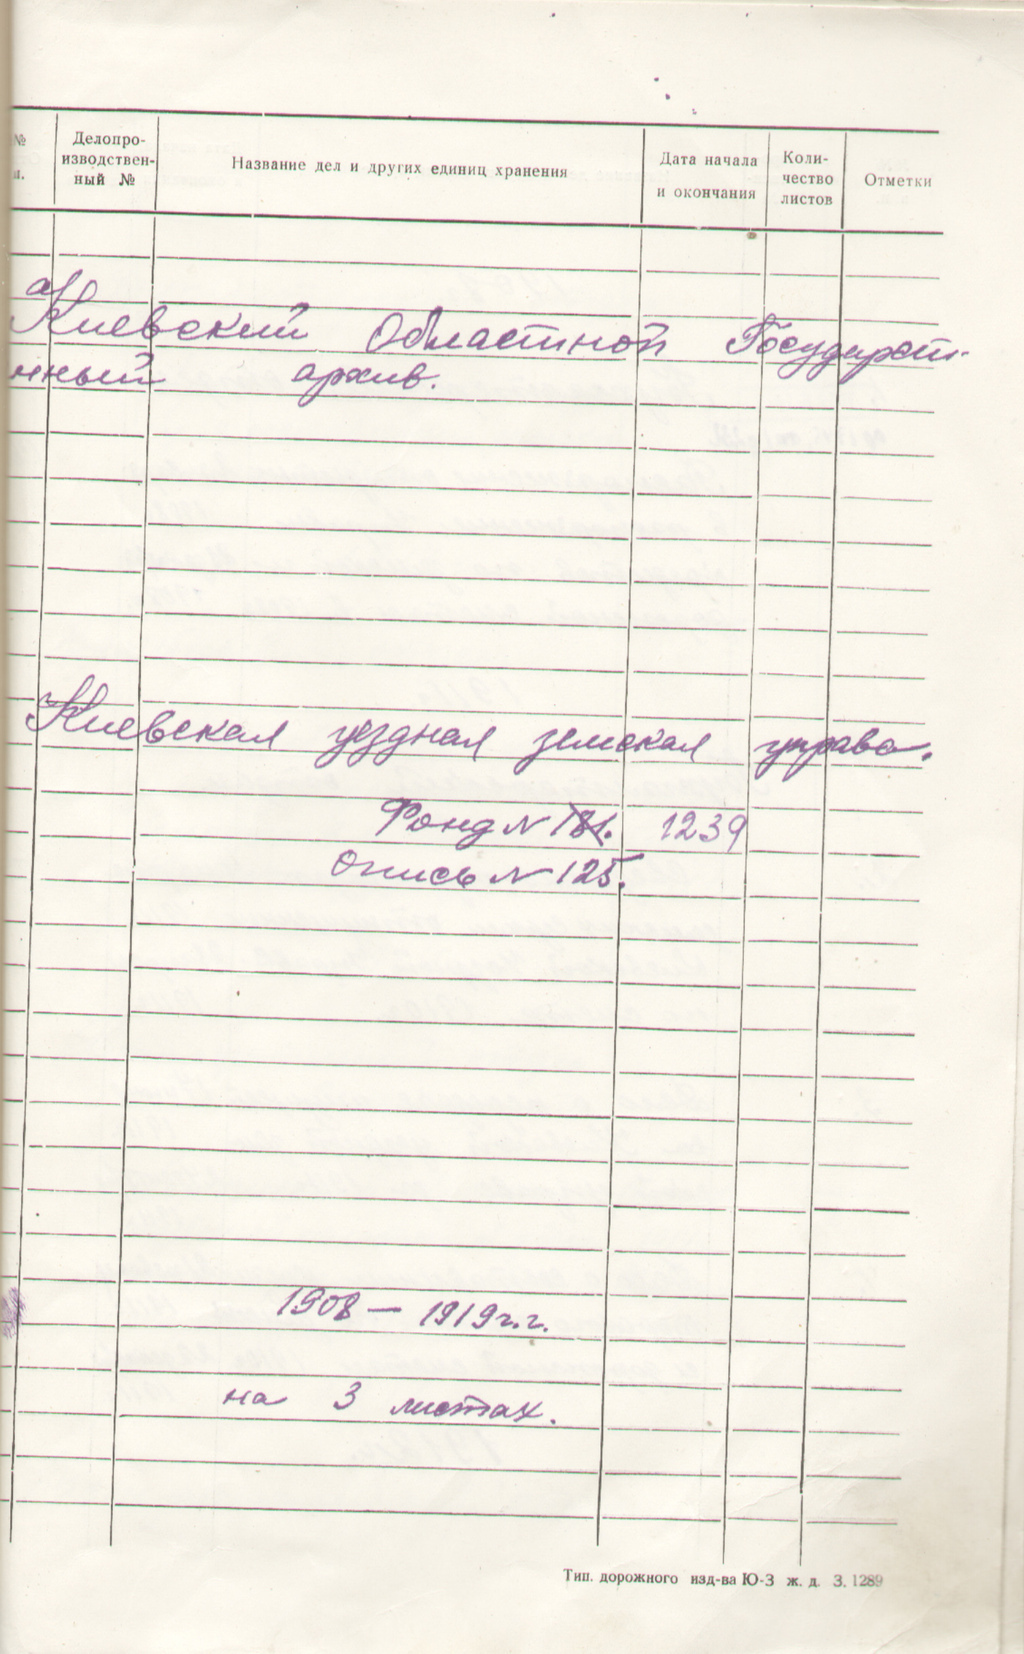 №
п.
Делопро-
изводствен-
ный №
Название дел и других единиц хранения
Дата начала
и окончания
Коли-
чество
листов
Отметки
Киевский Областной Государст-
нный архив.
Киевская уездная земская управа.
Фонд N 181. 1239
Опись N 125.
1908 — 1919 г.г.
на 3 листах.
Тип. дорожного изд-ва Ю-З ж. д. З. 1289